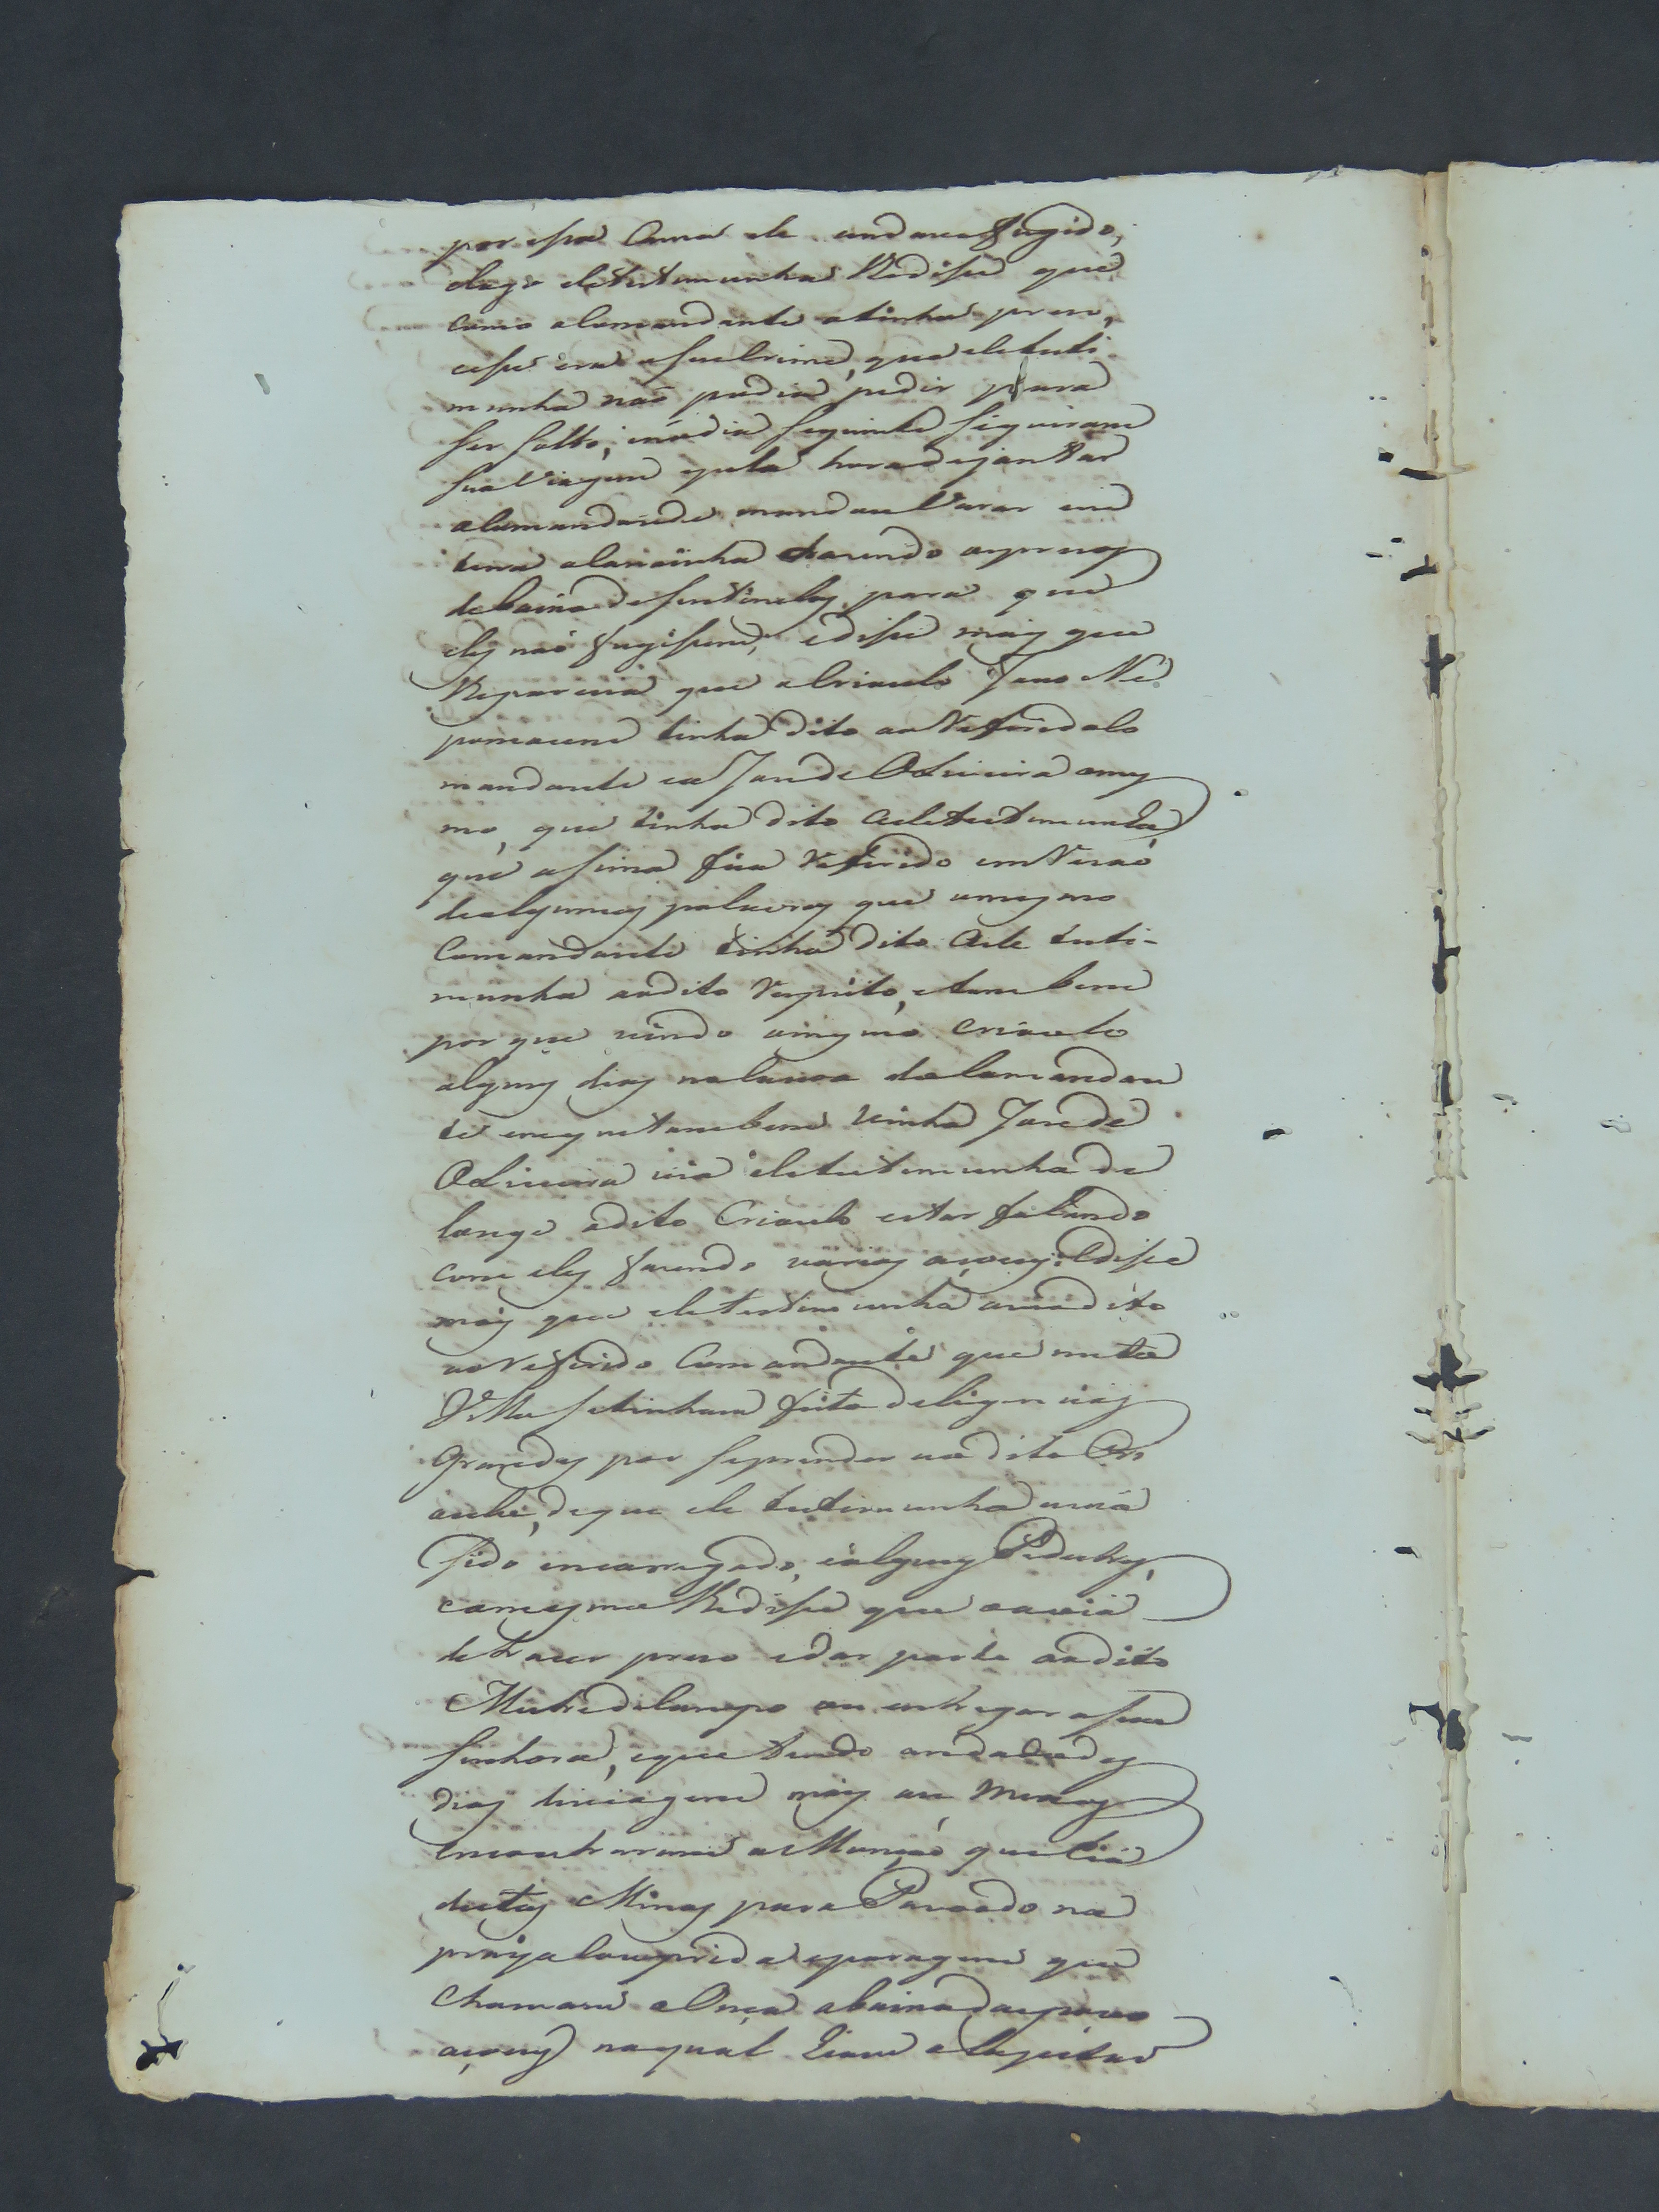 por essa cauza ele andava fugido,
elogo eletestemunha lhe disse que
como oComandante otinha prezo,
eesse era oseu Crime, que eletesti
munha não podia pedir para
ser solto; enodia seguinte seguiram
sua Viagem epela hora dejantar
oComandante mandou Varar em
terra aCanoinha trazendo osprezos
debaixo desentinelas para que
eles não fugissem; edisse mais que
lhe parecia que oCrioulo João Ne
pomoceno tinha dito ao Referido Co
mandante eaJoze de Oliveira omes
mo, que tinha dito aeletestemunha
que asima fica Referido em Rezaõ
dealgumas palavras que omesmo
Comandante tinha dito aele testi-
munha aodito Respeito, etambem
porque vindo omesmo Crioulo
alguns dias naCanoa doComandan
te emque tambem vinha Joze de
Oliveira via eletestemunha de
longe odito Crioulo estar falando
com eles fazendo varias acoens; Edisse
mais que eletestemunha avia dito
ao Referido Comandante que nesta
Villa setinham feito deligencias
Grandes por seprender ao dito Cri
oulo, deque ele testemunha avia
sido encarregado, ealguns Pedestres,
eomesmo lhe disse que oavia
detrazer prezo edar parte aodito
Mestre deCampo ou entregar asua
senhora, eque tendo andado des
dias deviagem mais ou menos
encontraram aMonção que hia
destas Minas para Povoado na
praya Comprida eparagem que
chamam aOnça abaixo daspovo
açoens naqual hiam aLegistar